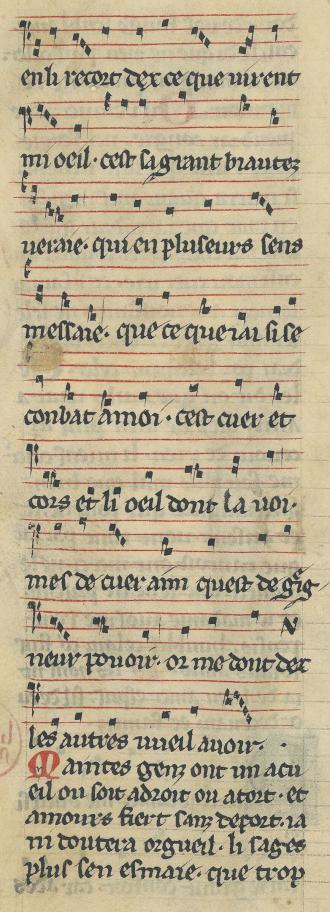 en li recort dex ce que virent
mi oeil · cest sa grant biautez
ueraie · qui en pluseurs sens
messaie · que ce que iai si se
conbat a moi · cest cuer et
cors et li oeil dont la uoi ·
mes de cuer aim quest de greig
neur pouoir · or me dont dex
les autres uueil auoir ·
Maintes genz ont un acu
eil ou soit adroit ou atort · et
amours fiert sanz deport · ia
ni doutera orgueil · li sages
plus sen esmaie · que trop